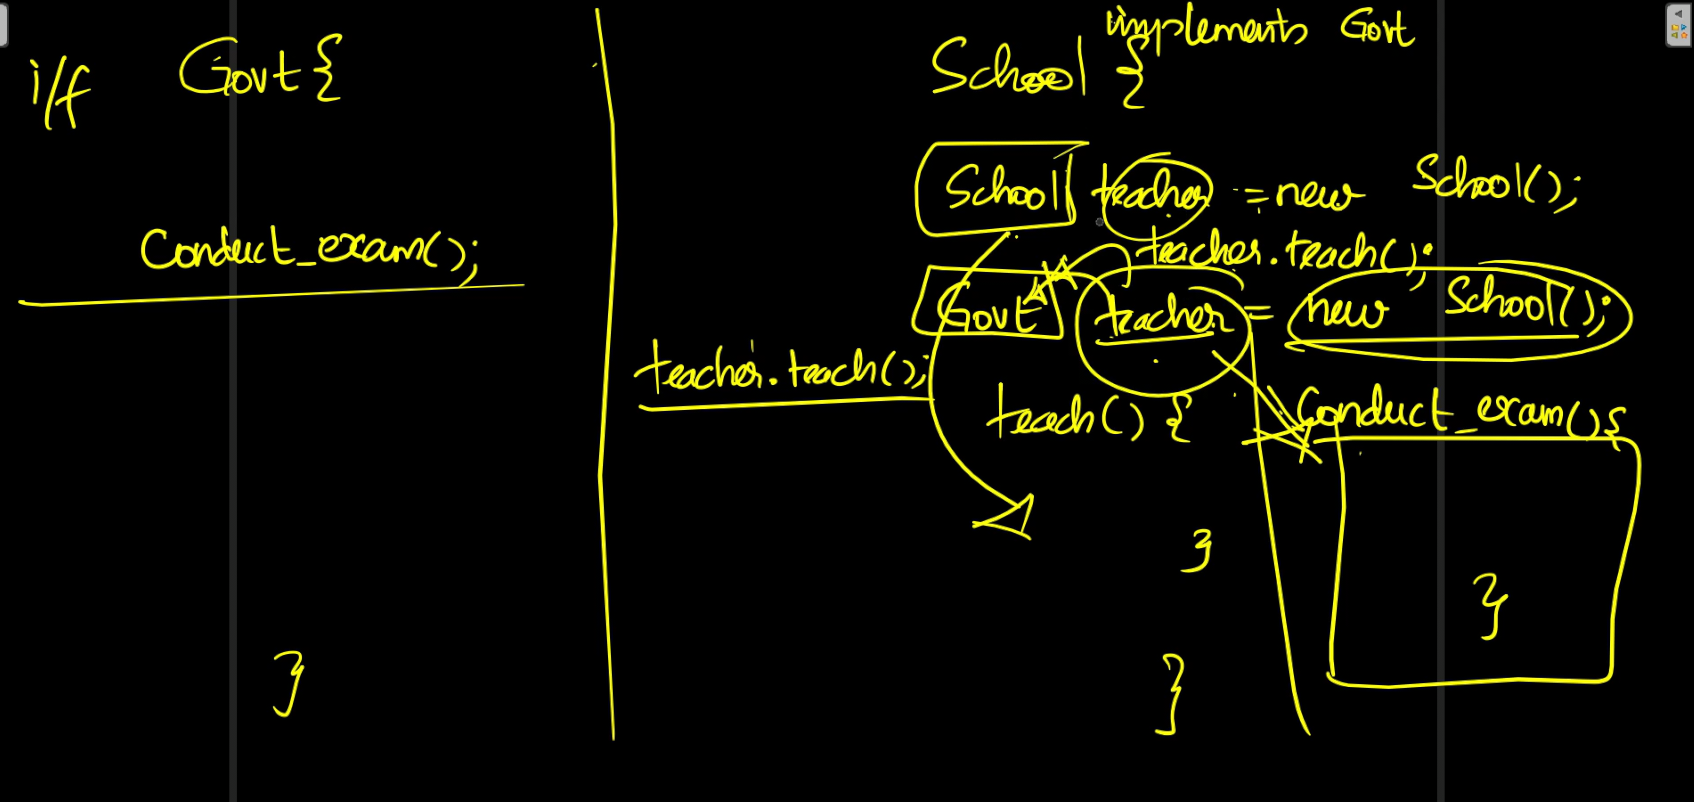 i/f Govt {
Conduct_exam();
}
implements Govt
School {
School teacher = new School();
teacher.teach();
Govt teacher = new School();
teacher.teach();
teach() {
}
Conduct_exam() {
}
}